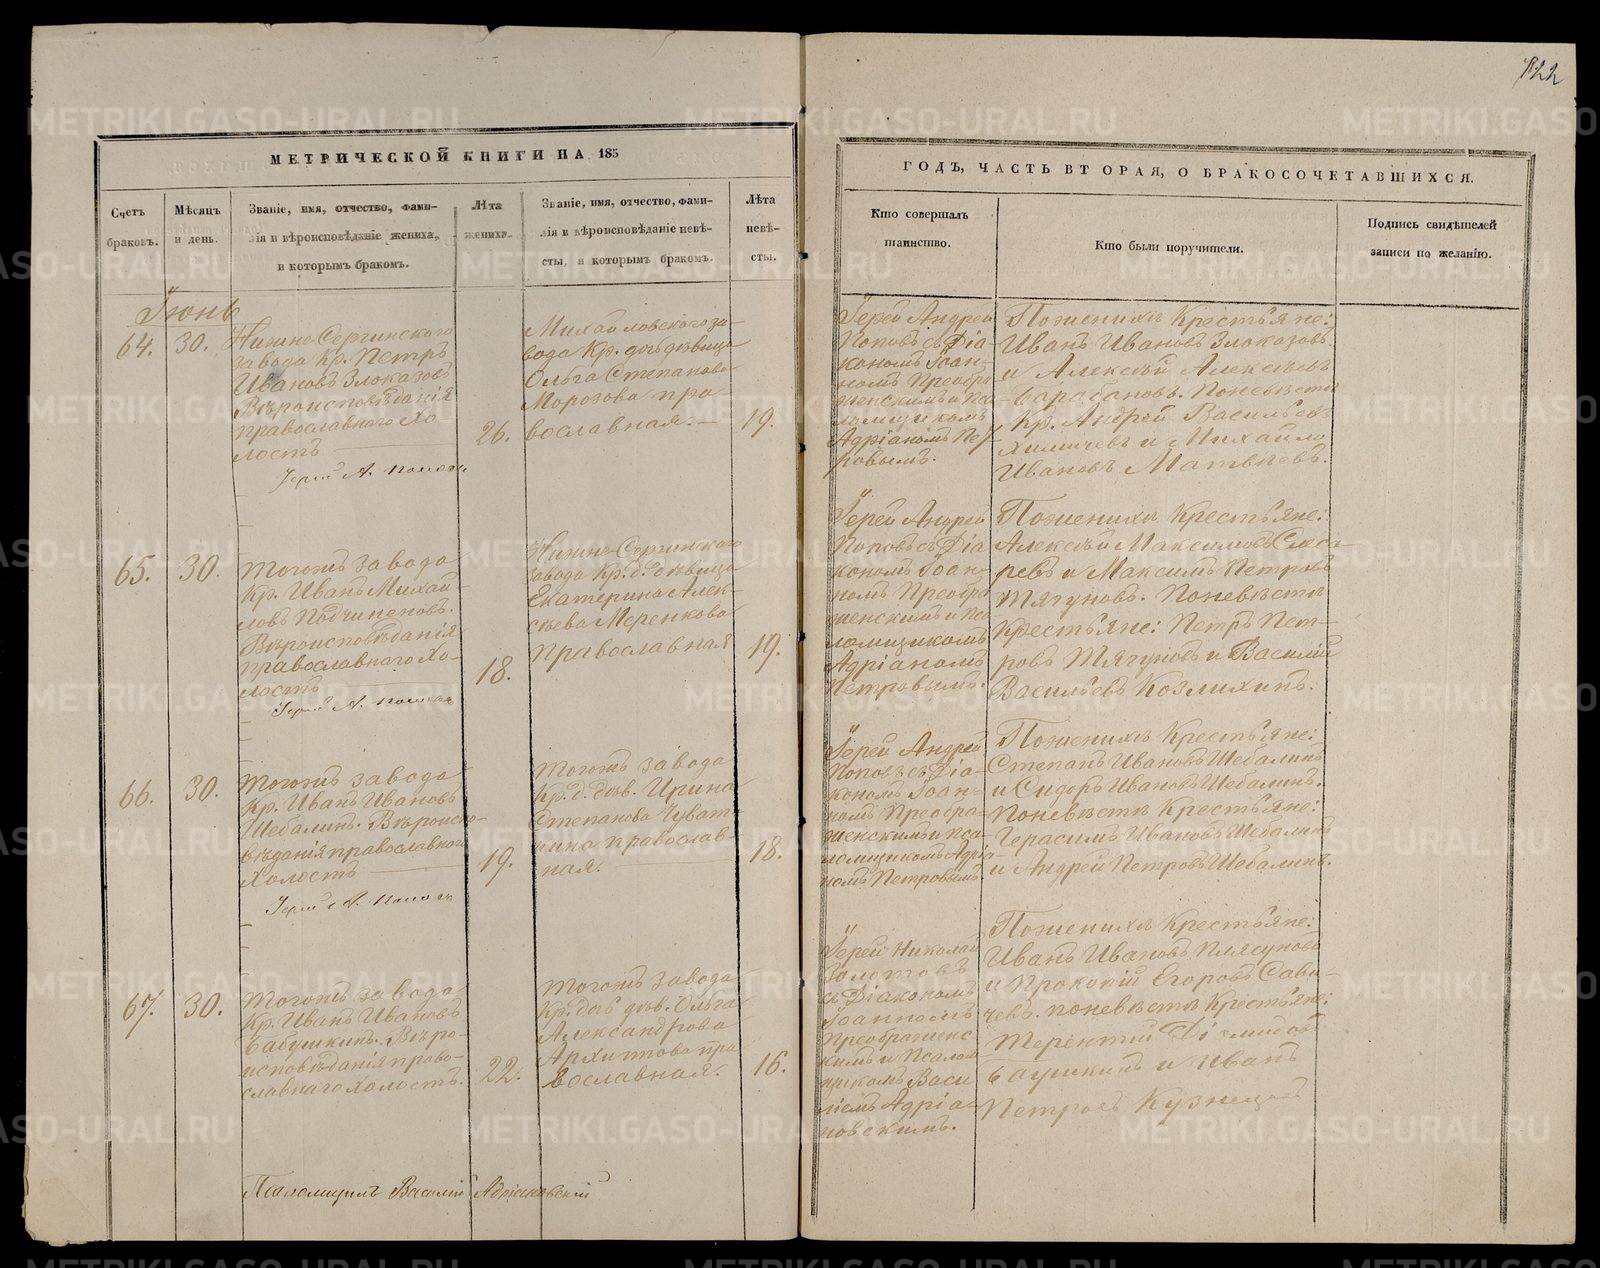 122
МЕТРИЧЕСКОЙ КНИГИ НА 185
ГОДЪ, ЧАСТЬ ВТОРАЯ, О БРАКОСОЧЕТАВШИХСЯ.
Счетъ
браковъ.
Мѣсяцъ
и день.
Званіе, имя, отчество, фами-
лія и вѣроисповѣданіе жениха,
и которымъ бракомъ.
Лѣта
жениха.
Званіе, имя, отчество, фами-
лія и вѣроисповѣданіе невѣ-
сты, и которымъ бракомъ.
Лѣта
невѣ-
сты.
Кто совершалъ
таинство.
Кто были поручители.
Подпись свидѣтелей
записи по желанію.
Іюнь
64.
30.
Нижне-Сергинскаго
завода Кр. Петръ
Ивановъ Злоказовъ
Вѣроисповѣданія
православнаго хо-
лостъ
26.
Михайловскаго за-
вода Кр. дочь дѣвица
Ольга Степанова
Морозова пра-
вославная.
19.
Іерей Андрей
Поповъ съ Діа-
кономъ Іоан-
номъ Преобра-
женскимъ и пса-
ломщикомъ
Адріаномъ Пет-
ровымъ.
По женихѣ Крестьяне:
Иванъ Ивановъ Злоказовъ
и Алексѣй Алексѣевъ
Барабановъ. По невѣстѣ
Кр. Андрей Васильевъ
и Михайло
Ивановъ Матвѣевъ.
Іерей А. Поповъ
65.
30.
Тогожъ завода
Кр. Иванъ Михай-
ловъ Подчиненовъ.
Вѣроисповѣданія
православнаго хо-
лостъ
18.
Нижне-Сергинскаго
завода Кр. д. дѣвица
Екатерина Алек-
сѣева Меренкова
православная
19.
Іерей Андрей
Поповъ съ Діа-
кономъ Іоан-
номъ Преобра-
женскимъ и пса-
ломщикомъ
Адріаномъ
Петровымъ.
По женихѣ Крестьяне:
Алексѣй Максимовъ Слеса-
ревъ и Максимъ Петровъ
Тягуновъ. По невѣстѣ
Крестьяне: Петръ Пет-
ровъ Тягуновъ и Василій
Васильевъ Козлихинъ.
Іерей А. Поповъ
66.
30.
Тогожъ завода
Кр. Иванъ Ивановъ
Шебалинъ. Вѣроиспо-
вѣданія православнаго
холостъ
19.
Тогожъ завода
Кр. д. дѣв. Ирина
Степанова Чуват-
кина православ-
ная.
18.
Іерей Андрей
Поповъ съ Діа-
кономъ Іоан-
номъ Преобра-
женскимъ и пса-
ломщикомъ Адріа-
номъ Петровымъ.
По женихѣ Крестьяне:
Степанъ Ивановъ Шебалинъ
и Сидоръ Ивановъ Шебалинъ.
По невѣстѣ Крестьяне:
Герасимъ Ивановъ Шебалинъ
и Андрей Петровъ Шебалинъ.
Іерей А. Поповъ
67.
30.
Тогожъ завода
Кр. Иванъ Ивановъ
Бабушкинъ. Вѣро-
исповѣданія право-
славнаго холостъ.
22.
Тогожъ завода
Кр. дочь дѣв. Ольга
Александрова
Архипова пра-
вославная.
16.
Іерей Николай
Золотовъ
съ Діакономъ
Іоанномъ
Преображенс-
кимъ и Псалом-
щикомъ Васи-
ліемъ Адріа-
новскимъ.
По женихѣ Крестьяне:
Иванъ Ивановъ Плясуновъ
и Прокопій Егоровъ Сави-
чевъ. по невѣстѣ Крестьяне:
Терентій
и Иванъ
Петровъ Кузнецовъ
Псаломщикъ Василій Адріановскій
METRIKI.GASO-URAL.RU